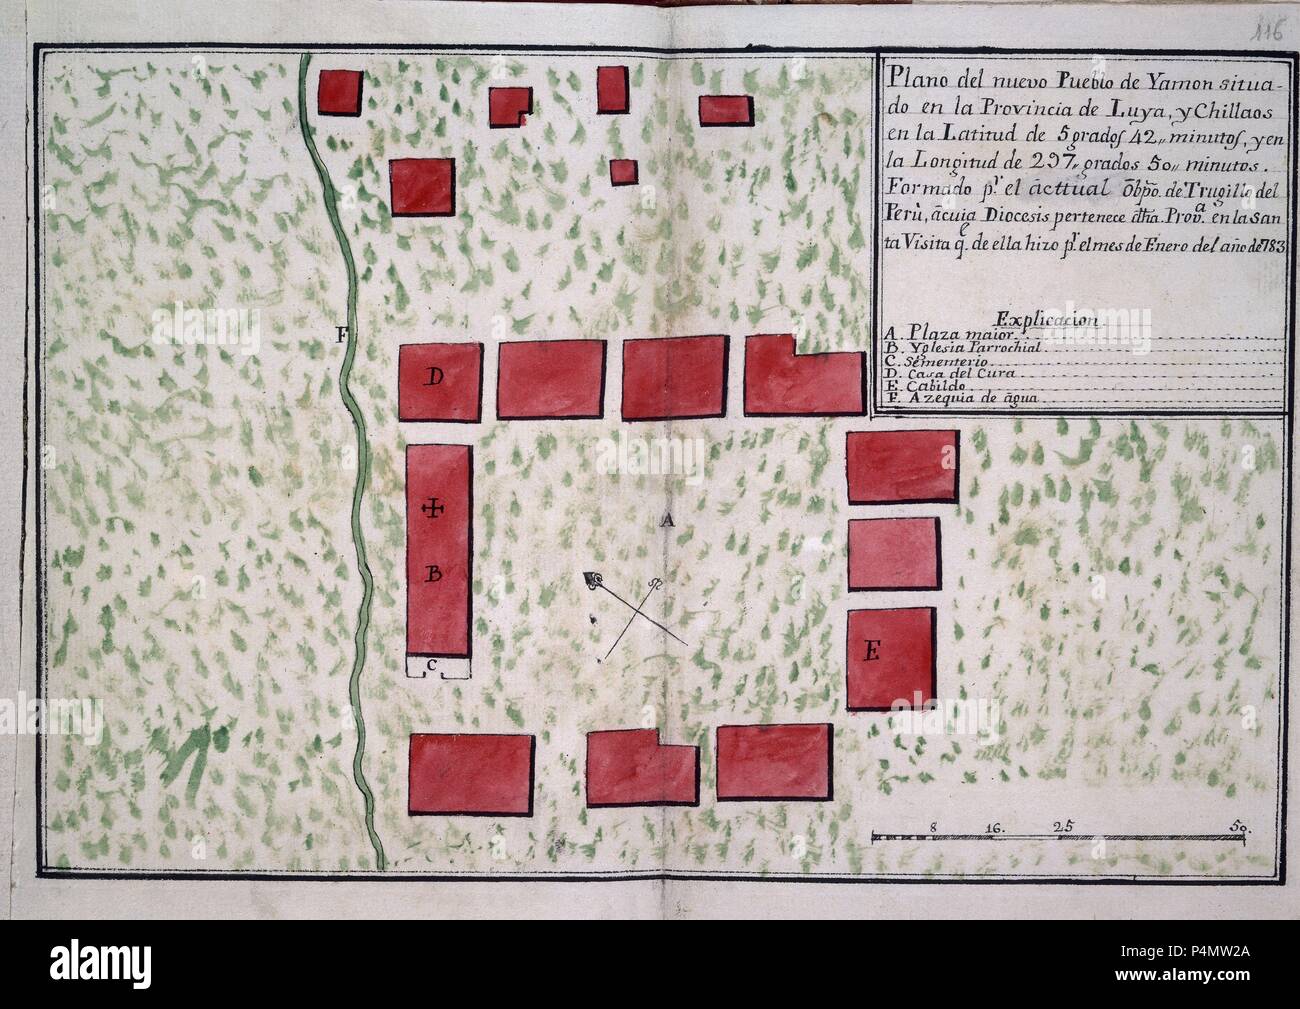 116
Plano del nuevo Pueblo de Yamon situa-
do en la Provincia de Luya, y Chillaos
en la Latitud de 5 grados 42,, minutos, y en
la Longitud de 297,, grados 50,, minutos.
Formado pr. el äcttual Obpo. de Trugillo del
Perù, äcuia Diocesis pertenece dha. Prova. en la San
ta Visita q. de ella hizo pr. el mes de Enero del año de 783
Explicacion
A. Plaza maior
B. Yglesia Parrochial
C. Sementerio
D. Casa del Cura
E. Cabildo
F. Azequia de ägua
F
D
A
B
C
E
8 16. 25 50.
alamy
alamy stock photo
Image ID: P4MW2A
www.alamy.com